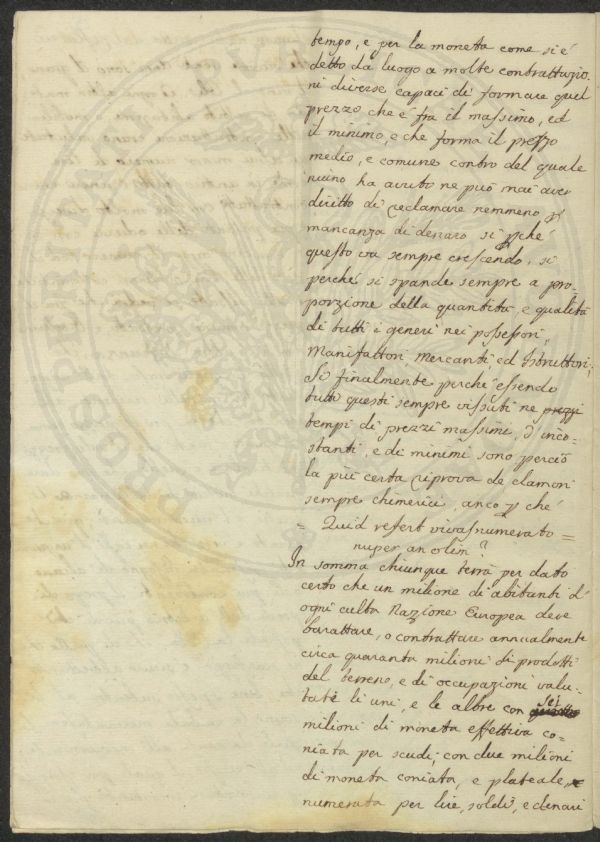 tempo, e per la moneta come si é
detto dà luogo a molte contrattazio-
ni diverse capaci di formare quel
prezzo che è fra il massimo, ed
il minimo, e che forma il prezzo
medio, e comune contro del quale
niuno ha avuto ne può mai aver
diritto di reclamare nemmeno p
mancanza di denaro si pché
questo va sempre crescendo, si
perché si spande sempre a pro-
porzione della quantità, e qualità
di tutti i generi nei possessori,
Manifattori, Mercanti, ed Istruttori;
Si finalmente perché essendo
tutti questi sempre vissuti ne prezzi
tempi di prezzi massimi, d'inco-
stanti, e di minimi sono perciò
la più certa riprova de clamori
sempre chimerici, anco p ché
= Quid refert vivas numerato =
nuper an olim?
In somma chiunque terrà per dato
certo che un milione di abitanti d'
ogni culta Nazione Europea deve
barattare, o contrattare annualmente
circa quaranta milioni di prodotti
del terreno, e di occupazioni valu-
tate li uni, e le altre con sei
milioni di moneta effettiva co-
niata per scudi; con due milioni
di moneta coniata, e plateale,
numerata per lire, soldi, e denari